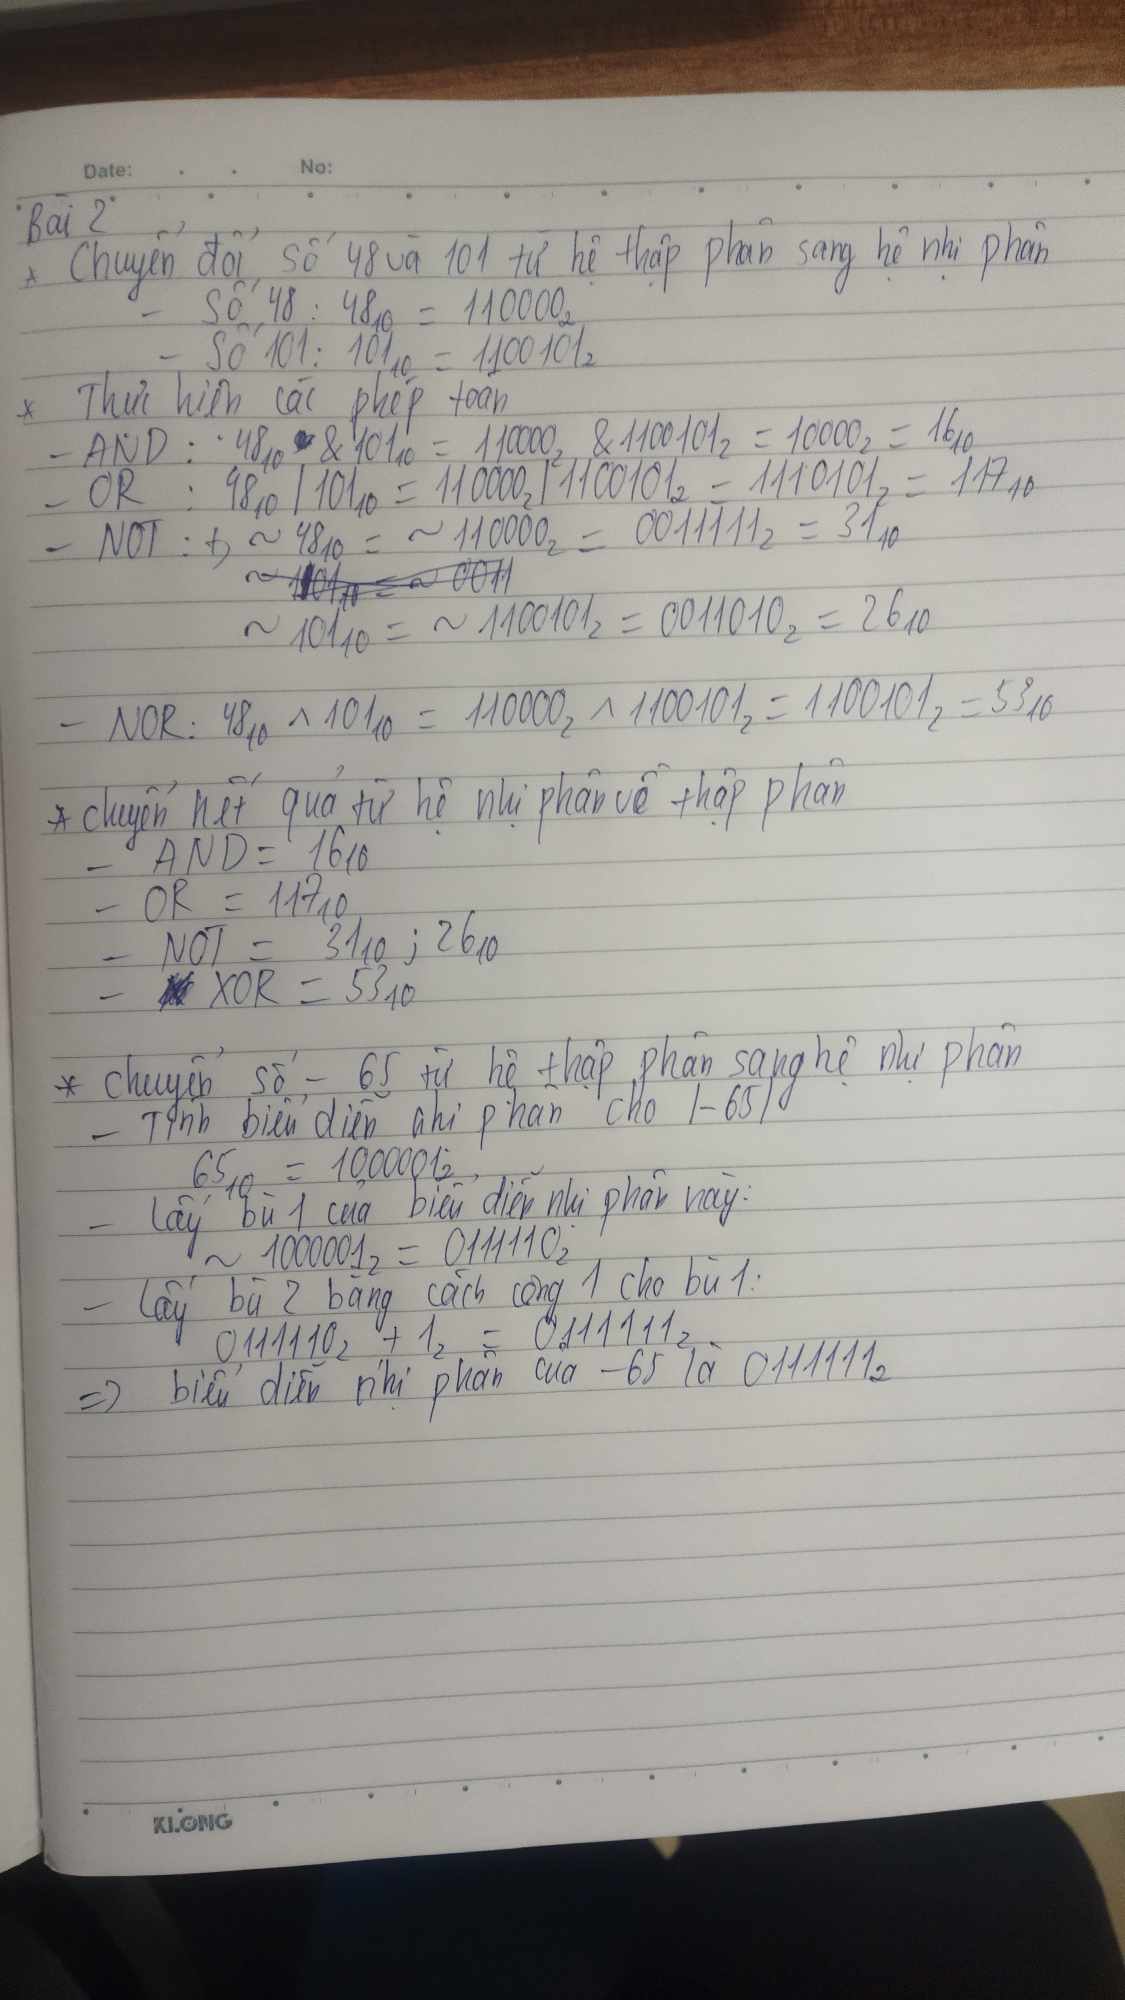 Date: No:
Bài 2
* Chuyển đổi số 48 và 101 từ hệ thập phân sang hệ nhị phân
- Số 48: 48₁₀ = 110000₂
- Số 101: 101₁₀ = 1100101₂
* Thực hiện các phép toán
- AND: 48₁₀ & 101₁₀ = 110000₂ & 1100101₂ = 10000₂ = 16₁₀
- OR : 48₁₀ | 101₁₀ = 110000₂ | 1100101₂ = 1110101₂ = 117₁₀
- NOT: +, ~ 48₁₀ = ~ 110000₂ = 0011111₂ = 31₁₀
~ 101₁₀ = ~ 0011
~ 101₁₀ = ~ 1100101₂ = 0011010₂ = 26₁₀
- NOR: 48₁₀ ^ 101₁₀ = 110000₂ ^ 1100101₂ = 1100101₂ = 53₁₀
* chuyển kết quả từ hệ nhị phân về thập phân
- AND = 16₁₀
- OR = 117₁₀
- NOT = 31₁₀ ; 26₁₀
- XOR = 53₁₀
* chuyển số - 65 từ hệ thập phân sang hệ nhị phân
- Tính biểu diễn nhị phân cho |-65|
65₁₀ = 1000001₂
- Lấy bù 1 của biểu diễn nhị phân này:
~ 1000001₂ = 0111110₂
- Lấy bù 2 bằng cách cộng 1 cho bù 1:
0111110₂ + 1₂ = 0111111₂
=> biểu diễn nhị phân của -65 là 0111111₂
KLONG